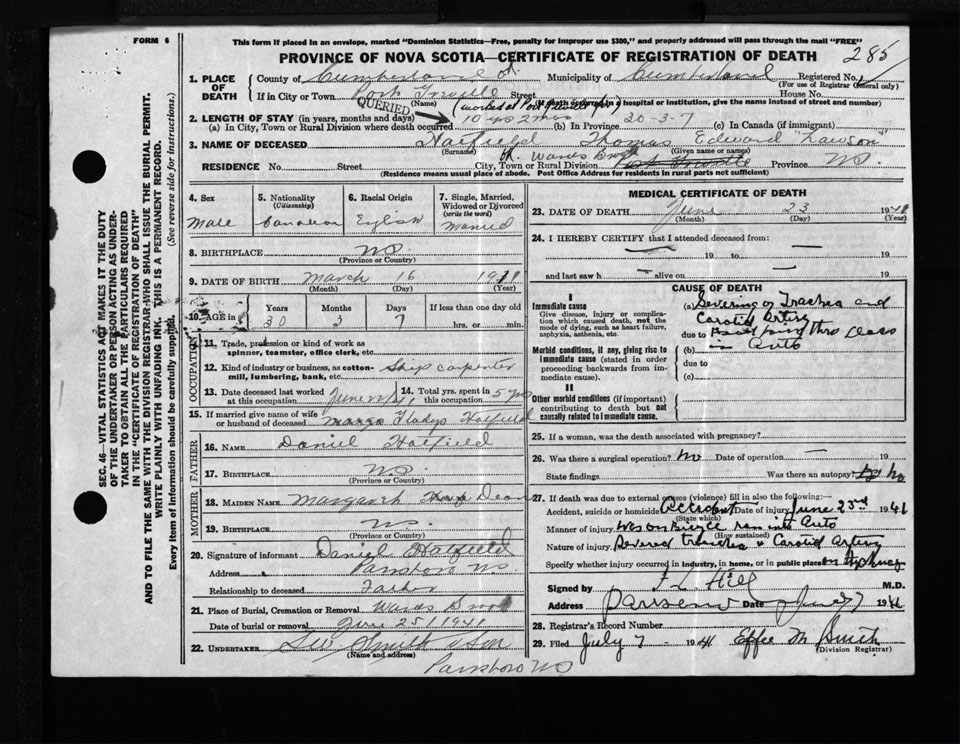 FORM 6
This form if placed in an envelope, marked "Dominion Statistics—Free, penalty for improper use $300," and properly addressed will pass through the mail "FREE"
PROVINCE OF NOVA SCOTIA—CERTIFICATE OF REGISTRATION OF DEATH
285
1. PLACE OF DEATH
County of Cumberland
Municipality of Cumberland
Registered No.
(For use of Registrar General only)
If in City or Town Port Greville Street House No.
(Name) (If death occurred in a hospital or institution, give the name instead of street and number)
QUERIED
2. LENGTH OF STAY (in years, months and days)
(a) In City, Town or Rural Division where death occurred 10 yrs 2 mos (b) In Province 20-3-7 (c) In Canada (if immigrant)
3. NAME OF DECEASED Hatfield Thomas Edward "Lawson"
(Surname) (Given name or names)
RESIDENCE No. Street City, Town or Rural Division Wards Port Greville Province NS.
(Residence means usual place of abode. Post Office Address for residents in rural parts not sufficient)
SEC. 46—VITAL STATISTICS ACT MAKES IT THE DUTY
OF THE UNDERTAKER OR PERSON ACTING AS UNDER-
TAKER TO OBTAIN ALL THE PARTICULARS REQUIRED
IN THE "CERTIFICATE OF REGISTRATION OF DEATH"
AND TO FILE THE SAME WITH THE DIVISION REGISTRAR WHO SHALL ISSUE THE BURIAL PERMIT.
(See reverse side for instructions.)
WRITE PLAINLY WITH UNFADING INK. THIS IS A PERMANENT RECORD.
Every item of information should be carefully supplied.
4. Sex
Male
5. Nationality
(Citizenship)
Canadian
6. Racial Origin
English
7. Single, Married, Widowed or Divorced
(write the word)
Married
8. BIRTHPLACE N.S.
(Province or Country)
9. DATE OF BIRTH March 16 1911
(Month) (Day)
10. AGE in
Years Months Days If less than one day old
30 3 7 hrs. or min.
OCCUPATION
11. Trade, profession or kind of work as
spinner, teamster, office clerk, etc.
12. Kind of industry or business, as cotton-
mill, lumbering, bank, etc. Ship carpenter
13. Date deceased last worked
at this occupation June
14. Total yrs. spent in
this occupation 5 yrs
15. If married give name of wife
or husband of deceased Gladys Hatfield
FATHER
16. Name Daniel Hatfield
17. Birthplace N.S.
(Province or Country)
MOTHER
18. Maiden Name Margaret
19. Birthplace N.S.
(Province or Country)
20. Signature of informant Daniel Hatfield
Address Parrsboro N.S.
Relationship to deceased Father
21. Place of Burial, Cremation or Removal Wards Brook
Date of burial or removal June 25 1941
22. UNDERTAKER Smith & Son
(Name and address)
Parrsboro NS
MEDICAL CERTIFICATE OF DEATH
23. DATE OF DEATH June 23 1941
(Month) (Day)
24. I HEREBY CERTIFY that I attended deceased from:
19 to 19
and last saw h alive on 19
CAUSE OF DEATH
Immediate cause
Give disease, injury or complica-
tion which caused death, not the
mode of dying, such as heart failure,
asphyxia, asthenia, etc.
(a) Severing of Trachea and
Carotid Artery
due to
(b) in Auto
due to
(c)
Morbid conditions, if any, giving rise to
immediate cause (stated in order
proceeding backwards from im-
mediate cause).
Other morbid conditions (if important)
contributing to death but not
causally related to immediate cause.
25. If a woman, was the death associated with pregnancy?
26. Was there a surgical operation? No Date of operation —
State findings Was there an autopsy? No
27. If death was due to external causes (violence) fill in also the following:—
Accident, suicide or homicide Accident Date of injury June 23rd 1941
(State which)
Manner of injury Was on Bicycle ran into Auto
(How sustained)
Nature of injury Severed trachea & Carotid artery
Specify whether injury occurred in industry, in home, or in public place on Highway
Signed by F L Hill M.D.
Address Parrsboro Date 1941
28. Registrar's Record Number
29. Filed July 7 - 1941 Effie M Smith
(Division Registrar)